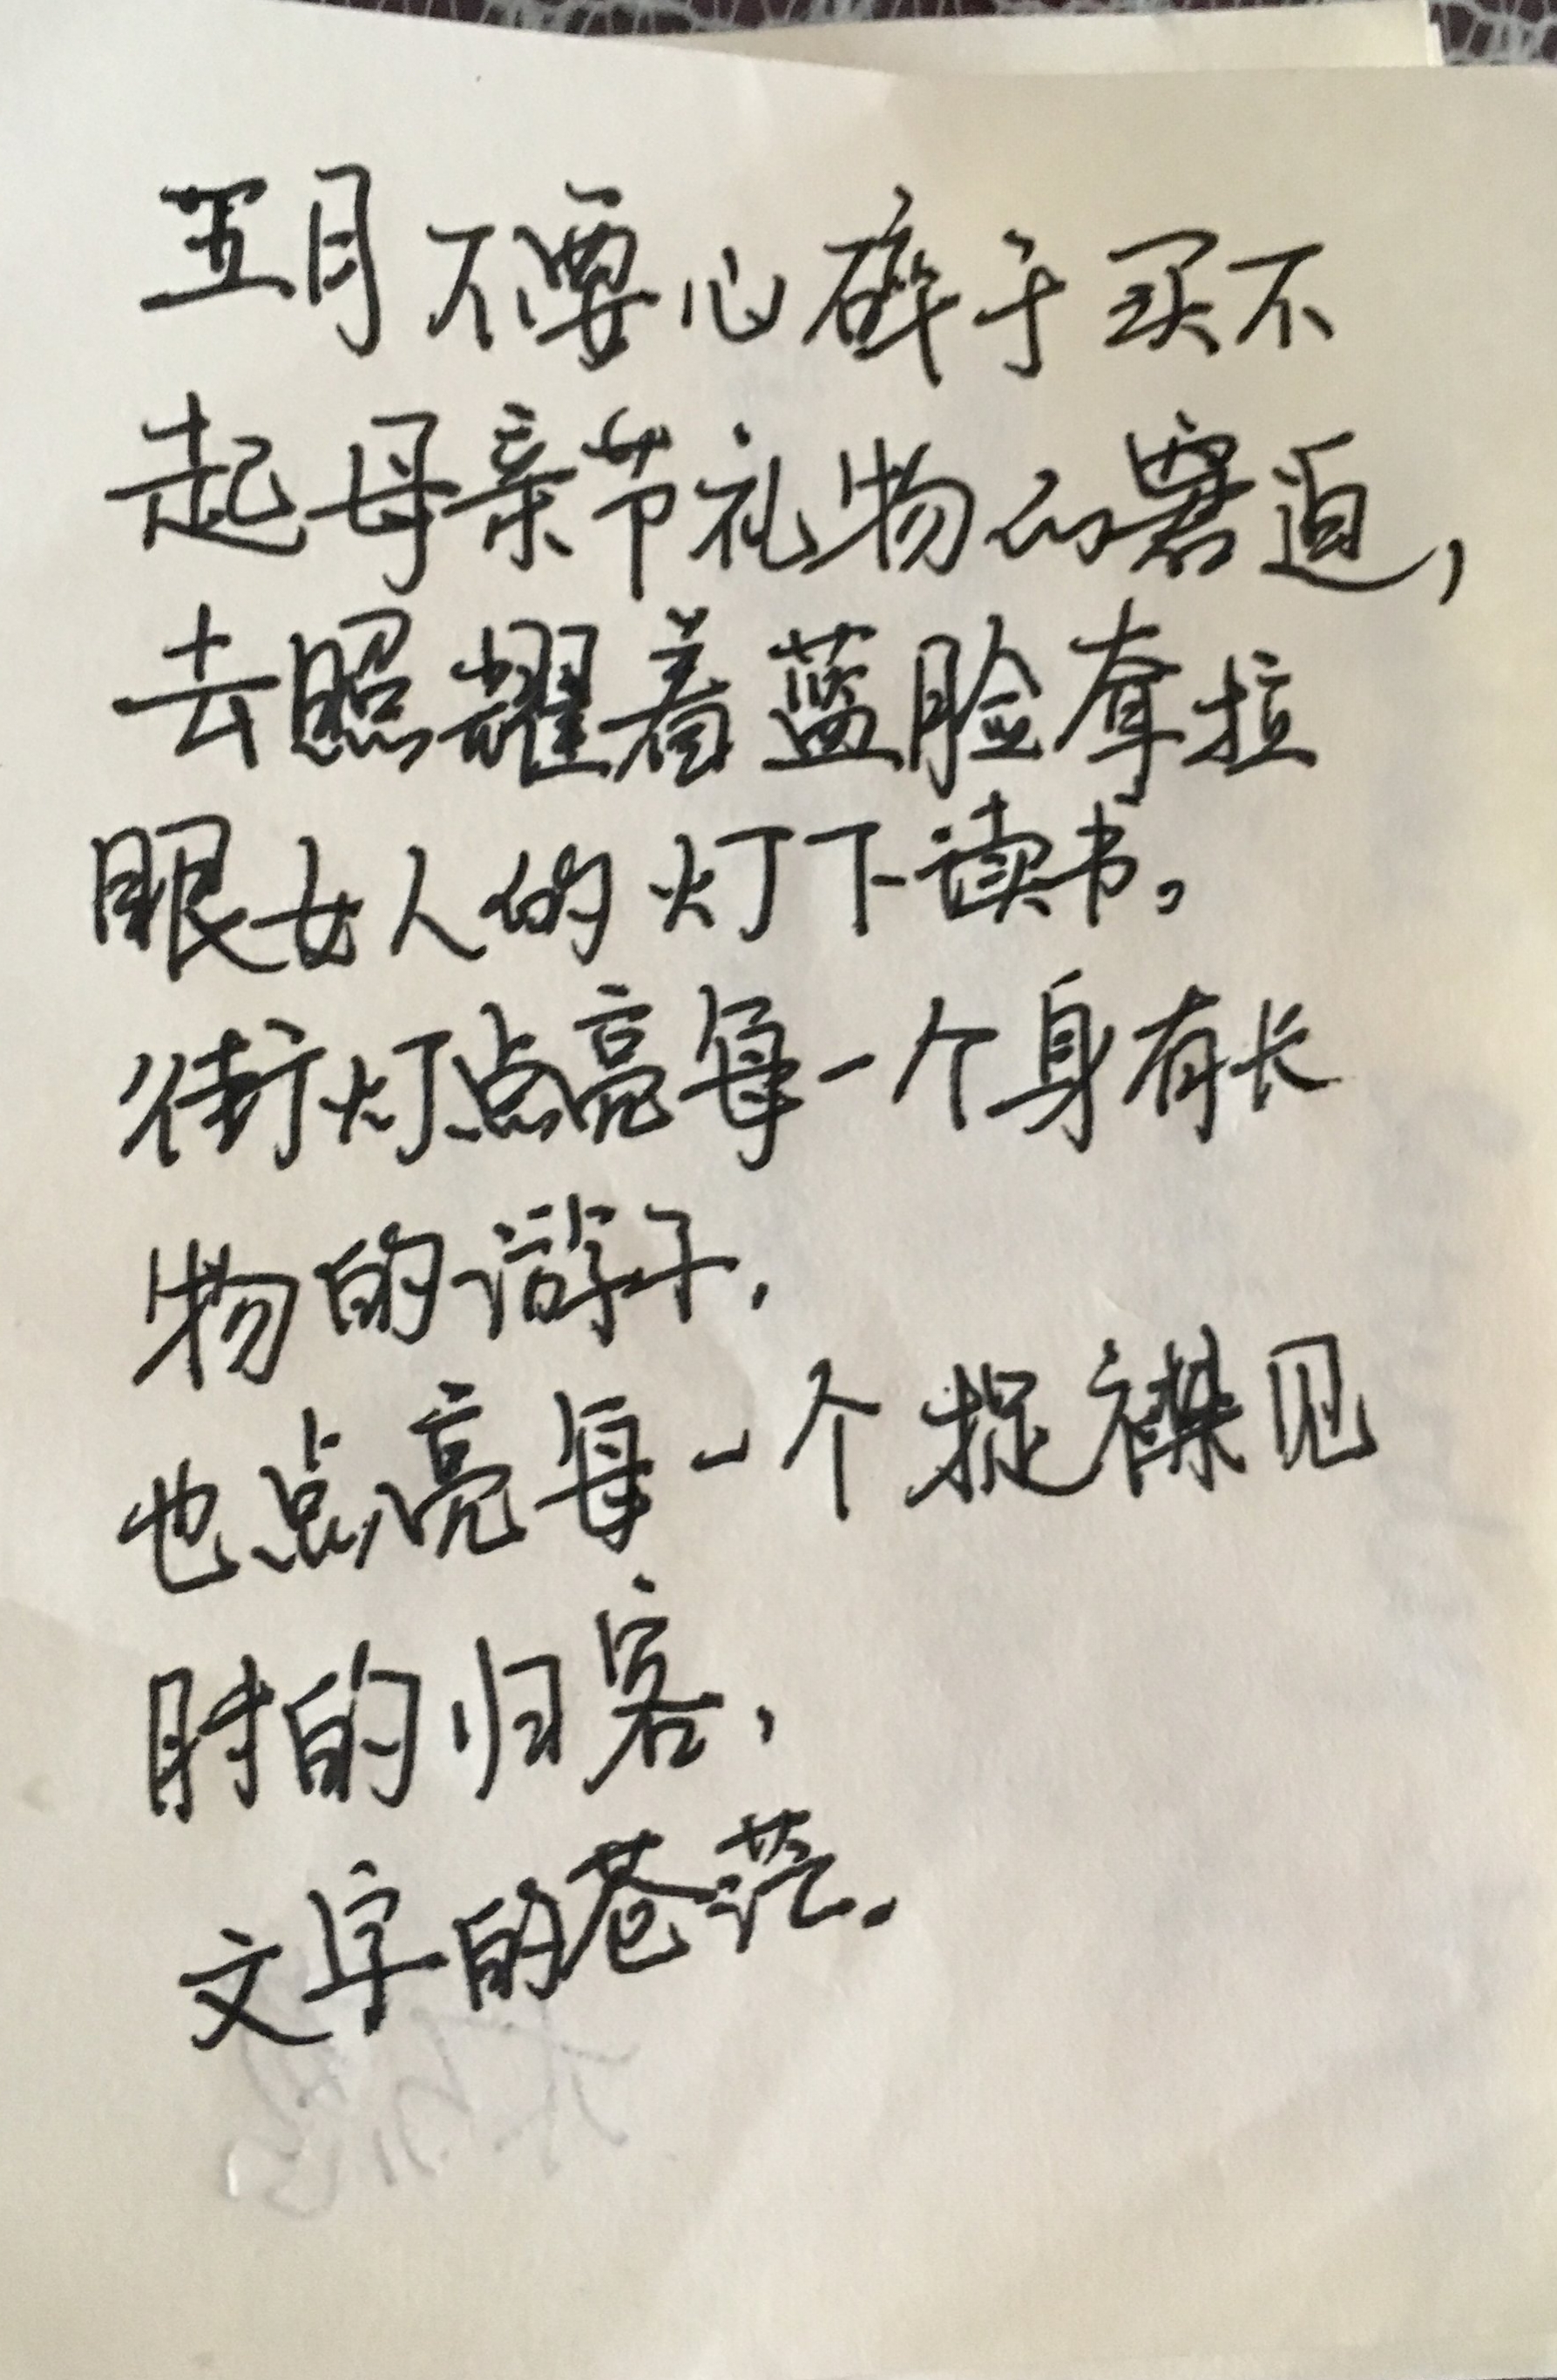 五月不要心碎于买不
起母亲节礼物的窘迫,
去照耀着蓝脸耷拉
眼女人的灯下读书。
街灯点亮每一个身有长
物的游子,
也点亮每一个捉襟见
肘的归客,
文字的苍茫.